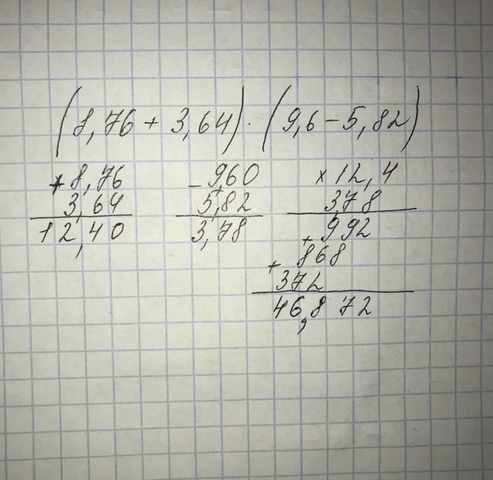 (8,76 + 3,64) · (9,6 - 5,82)
+8,76
3,64
12,40
-9,60
5,82
3,78
×12,4
3,78
+992
+868
372
46,872